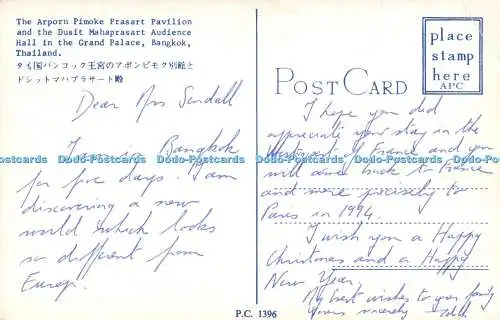 The Arporn Pimoke Prasart Pavilion
and the Dusit Mahaprasart Audience
Hall in the Grand Palace, Bangkok,
Thailand.
タイ国バンコック王宮のアポンピモク別館と
ドシットマハプラサート殿
POST CARD
place
stamp
here
APC
Dear Mrs Sendall
I am in Bangkok
for five days. I am
discovering a new
world which looks
so different from
Europ.
I hope you did
appreciate your stay in the
Westcoast of France and you
will come back to France
and more precisely to
Paris in 1994.
I wish you a Happy
Christmas and a Happy
New Year.
My best wishes to your family
Yours sincerely
P.C. 1396
Dodo-Postcards Dodo-Postcards Dodo-Postcards Dodo-Postcards